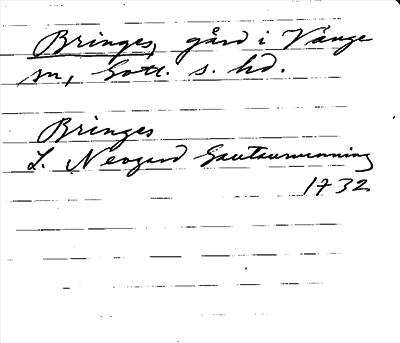 Bringes, gård i Vänge
sn, Gotl. s. hd.
Bringes
L. Neogard Gautauminning
1732